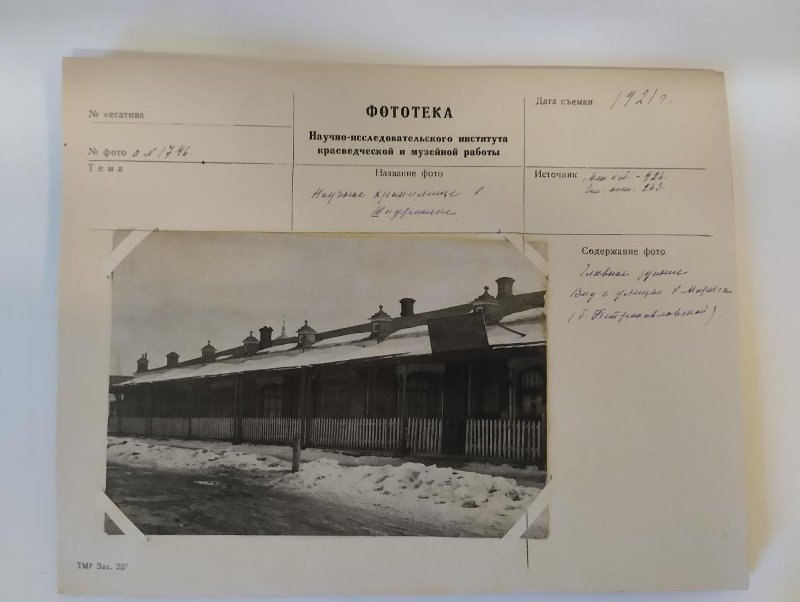 № негатива
№ фото оп 1746
Тема
ФОТОТЕКА
Научно-исследовательского института
краеведческой и музейной работы
Название фото
Научное хранилище в
Дата съемки 1921 г.
Источник
Содержание фото
Главное здание
Вид с улицы К. Маркса
(б. Петропавловской).
ТМГ Зак. 237